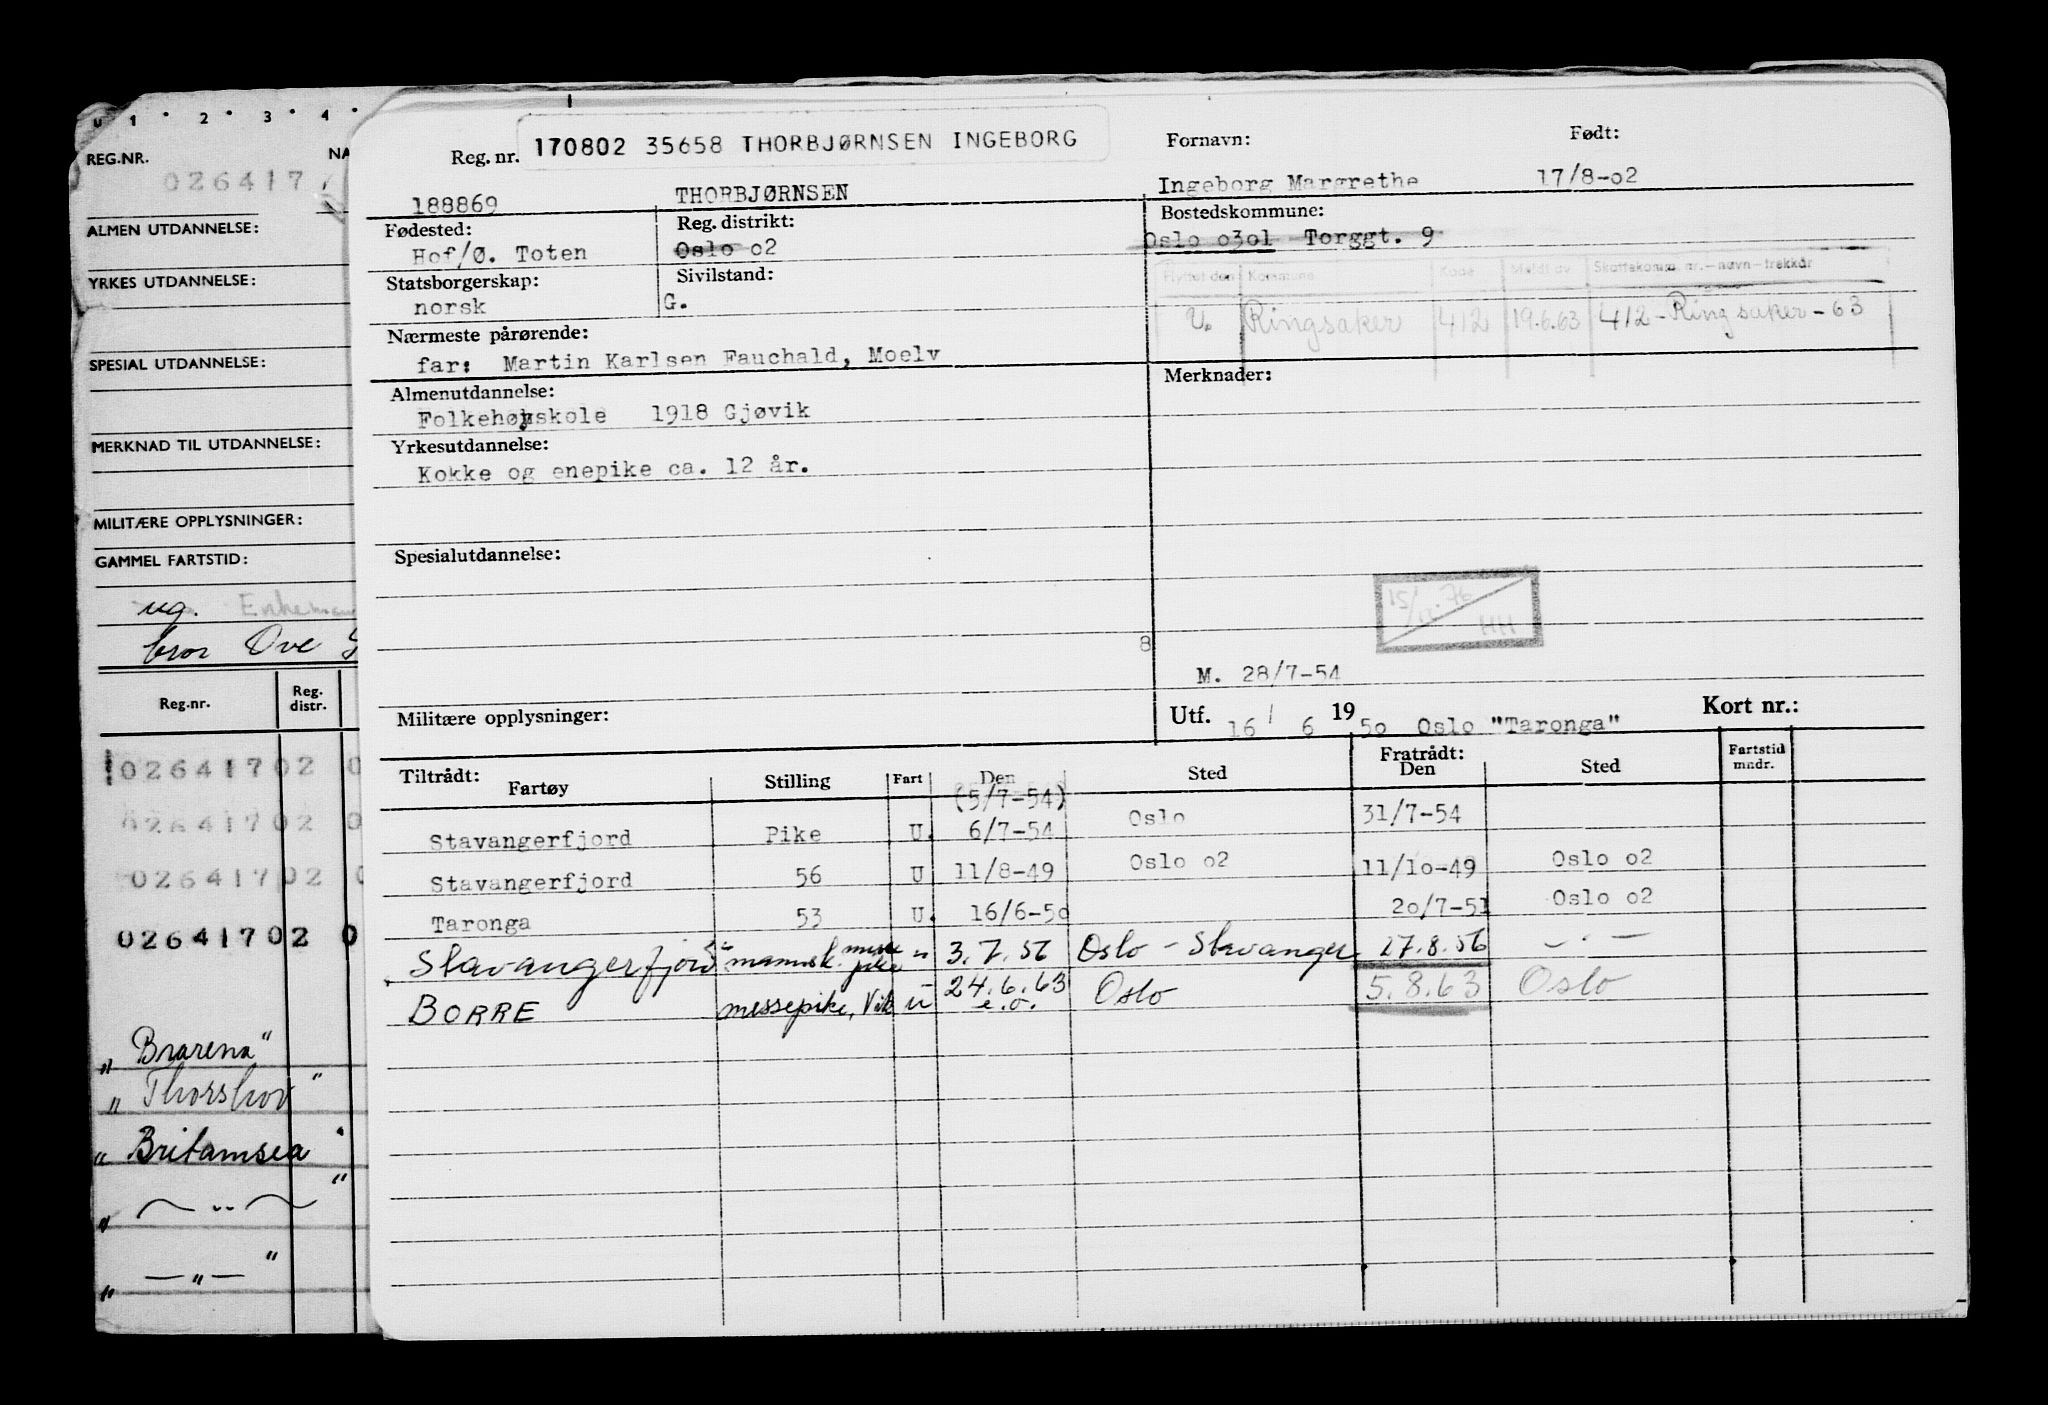 u 1 · 2 · 3 · 4 ·
REG.NR. NA
026417
ALMEN UTDANNELSE:
YRKES UTDANNELSE:
SPESIAL UTDANNELSE:
MERKNAD TIL UTDANNELSE:
MILITÆRE OPPLYSNINGER:
GAMMEL FARTSTID:
ug.
bror Ove
Reg.nr. Reg. distr.
02641702 0
02641702 0
02641702 0
02641702 0
„ Brarena"
„ Thorshov"
„ Britamsea"
„ — „ — "
„ — „ — "
Reg. nr. 170802 35658 THORBJØRNSEN INGEBORG Fornavn: Født:
188869 THORBJØRNSEN Ingeborg Margrethe 17/8-o2
Fødested: Reg. distrikt: Bostedskommune:
Hof/Ø. Toten Oslo o2 Oslo o3o1 Torggt. 9
Statsborgerskap: Sivilstand: Flyttet den Kommune Kode Meldt av Skattekomm. nr.—navn—trekkår
norsk G. U. Ringsaker 412 19.6.63 412-Ringsaker-63
Nærmeste pårørende:
far: Martin Karlsen Fauchald, Moelv
Almenutdannelse: Merknader:
Folkehøyskole 1918 Gjøvik
Yrkesutdannelse:
Kokke og enepike ca. 12 år.
Spesialutdannelse:
15/12.76 HH
8
M. 28/7-54
Militære opplysninger: Utf. 16 / 6 19 50 Oslo "Taronga" Kort nr.:
Tiltrådt: Fartøy Stilling Fart Den Sted Fratrådt: Den Sted Fartstid mndr.
(5/7-54)
Stavangerfjord Pike U. 6/7-54 Oslo 31/7-54
Stavangerfjord 56 U 11/8-49 Oslo o2 11/1o-49 Oslo o2
Taronga 53 U. 16/6-5o 2o/7-51 Oslo o2
Stavangerfjord mannsk. messe pike " 3.7.56 Oslo - Stavanger 27.8.56 — · —
BORRE messepike, Vik u 24.6.63 e.o. Oslo 5.8.63 Oslo